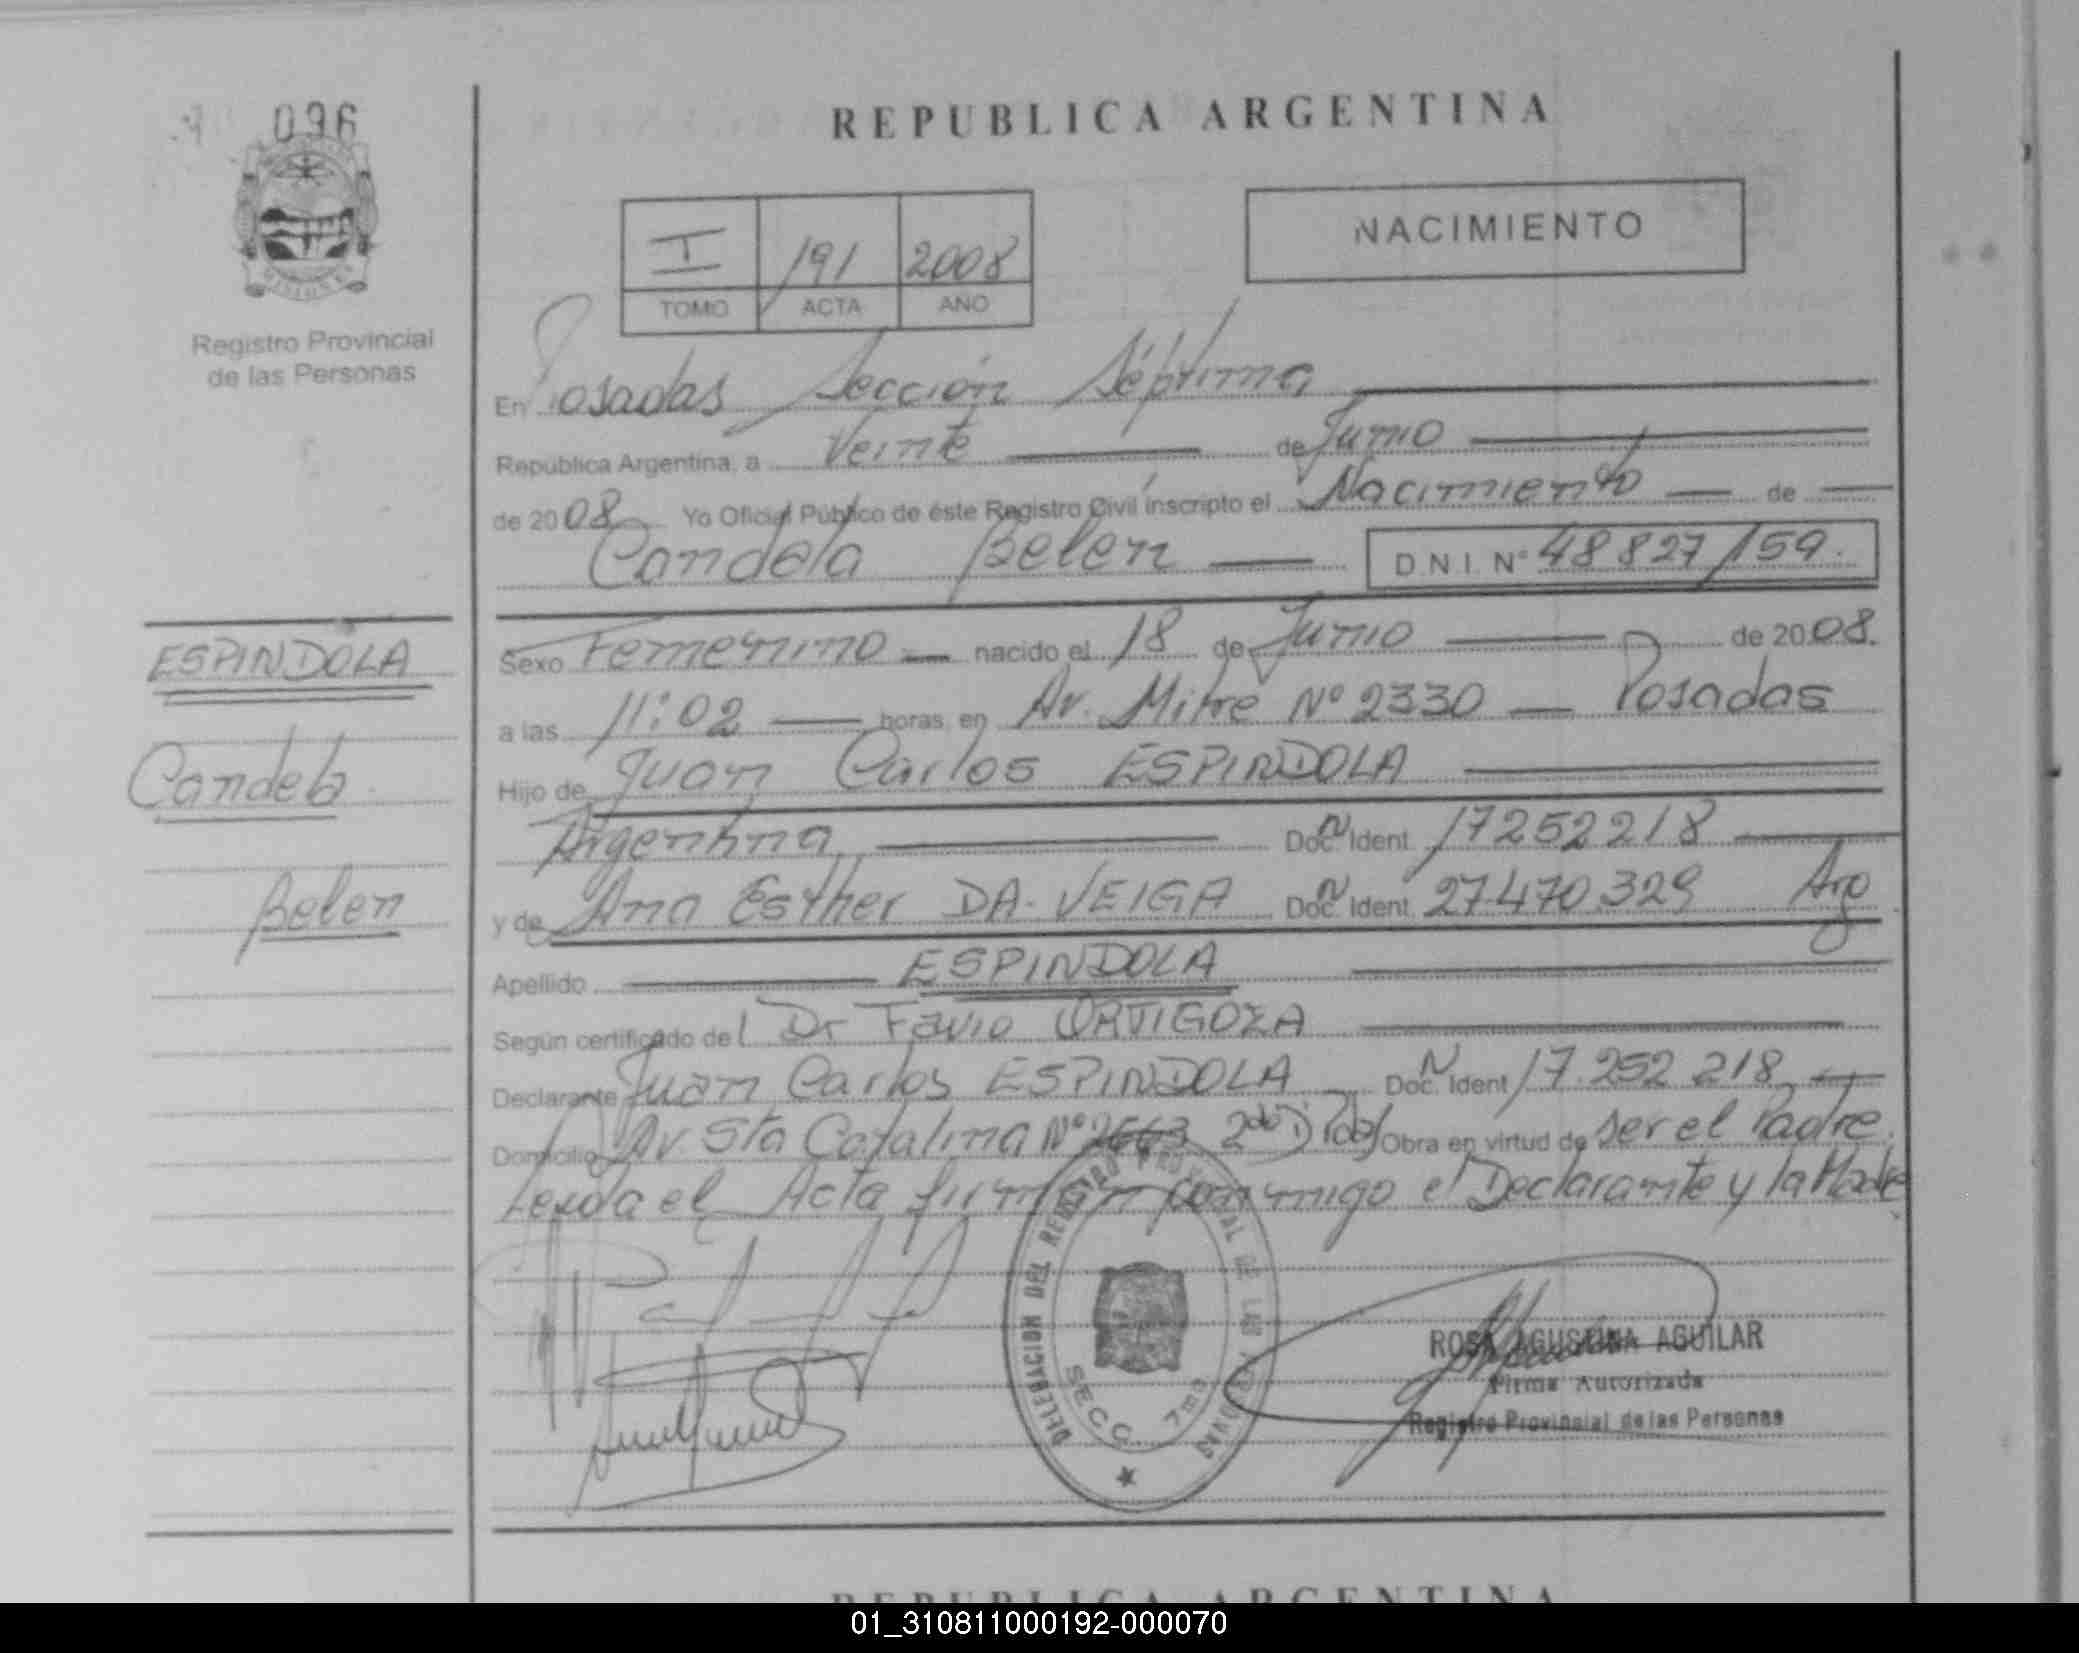 096
REPUBLICA ARGENTINA
NACIMIENTO
I 191 2008
TOMO ACTA AÑO
Registro Provincial
de las Personas
En Posadas Sección Séptima
República Argentina, a Veinte de Junio
de 2008 Yo Oficial Público de éste Registro Civil inscripto el Nacimiento de
Candela Belen D.N.I. N° 48 827 159.
ESPINDOLA
Candela
Belen
Sexo Femenino nacido el 18 de Junio de 2008.
a las 11:02 horas, en Av. Mitre N° 2330 Posadas
Hijo de Juan Carlos ESPINDOLA
Argentina Doc. N Ident. 17252218
y de Ana Esther DA VEIGA Doc. N Ident. 27470329 Arg
Apellido ESPINDOLA
Según certificado del Dr Favio ORTIGOZA
Declarante Juan Carlos ESPINDOLA Doc. N Ident 17.252 218
Domicilio Av. Sta Catalina N° 2do D Obra en virtud de ser el Padre.
Leyda el Acta firman conmigo el Declarante y la Madre
DELEGACION DEL REGISTRO PROVINCIAL DE LAS PERSONAS
SECC. 7ma
ROSA AGUSTINA AGUILAR
Firma Autorizada
Registro Provincial de las Personas
REPUBLICA ARGENTINA
01_310811000192-000070